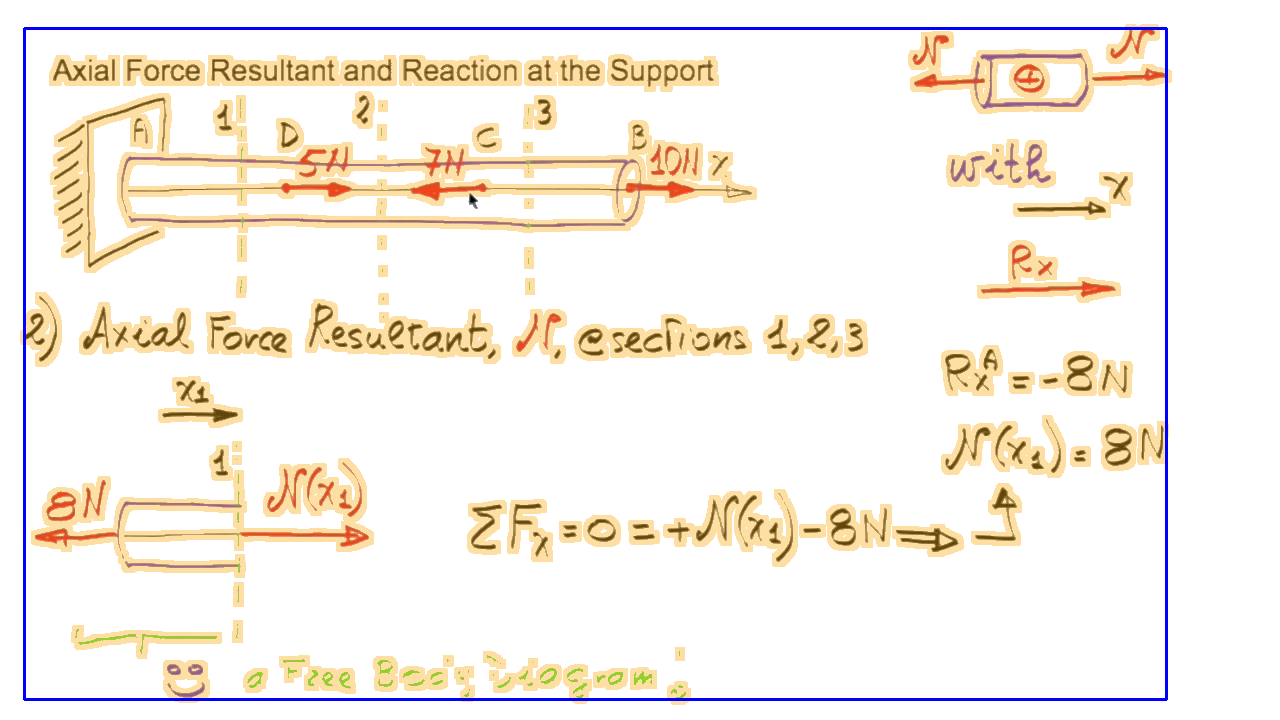 Axial Force Resultant and Reaction at the Support
N N
+
1 2 3
A D C B
5N 7N 10N x
with
x
Rx
2) Axial Force Resultant, N, @sections 1,2,3
RxA = -8N
x1
N(x1) = 8N
1
8N N(x1)
ΣFx = 0 = +N(x1) - 8N ⟹
a Free Body Diagram